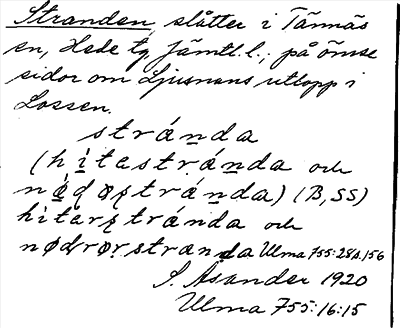 Stranden, slåtter i Tännäs
en, Hede tg, Jämtl. l.; på ömse
sidor om Ljusnans utlopp i
Lossen.
stránda
(hitestránda och
nø̀døstránda) (B, SS)
hitarstránda och
nødrorstranda Ulma 755:28 s. 156
S. Åsander 1920
Ulma 755:16:15